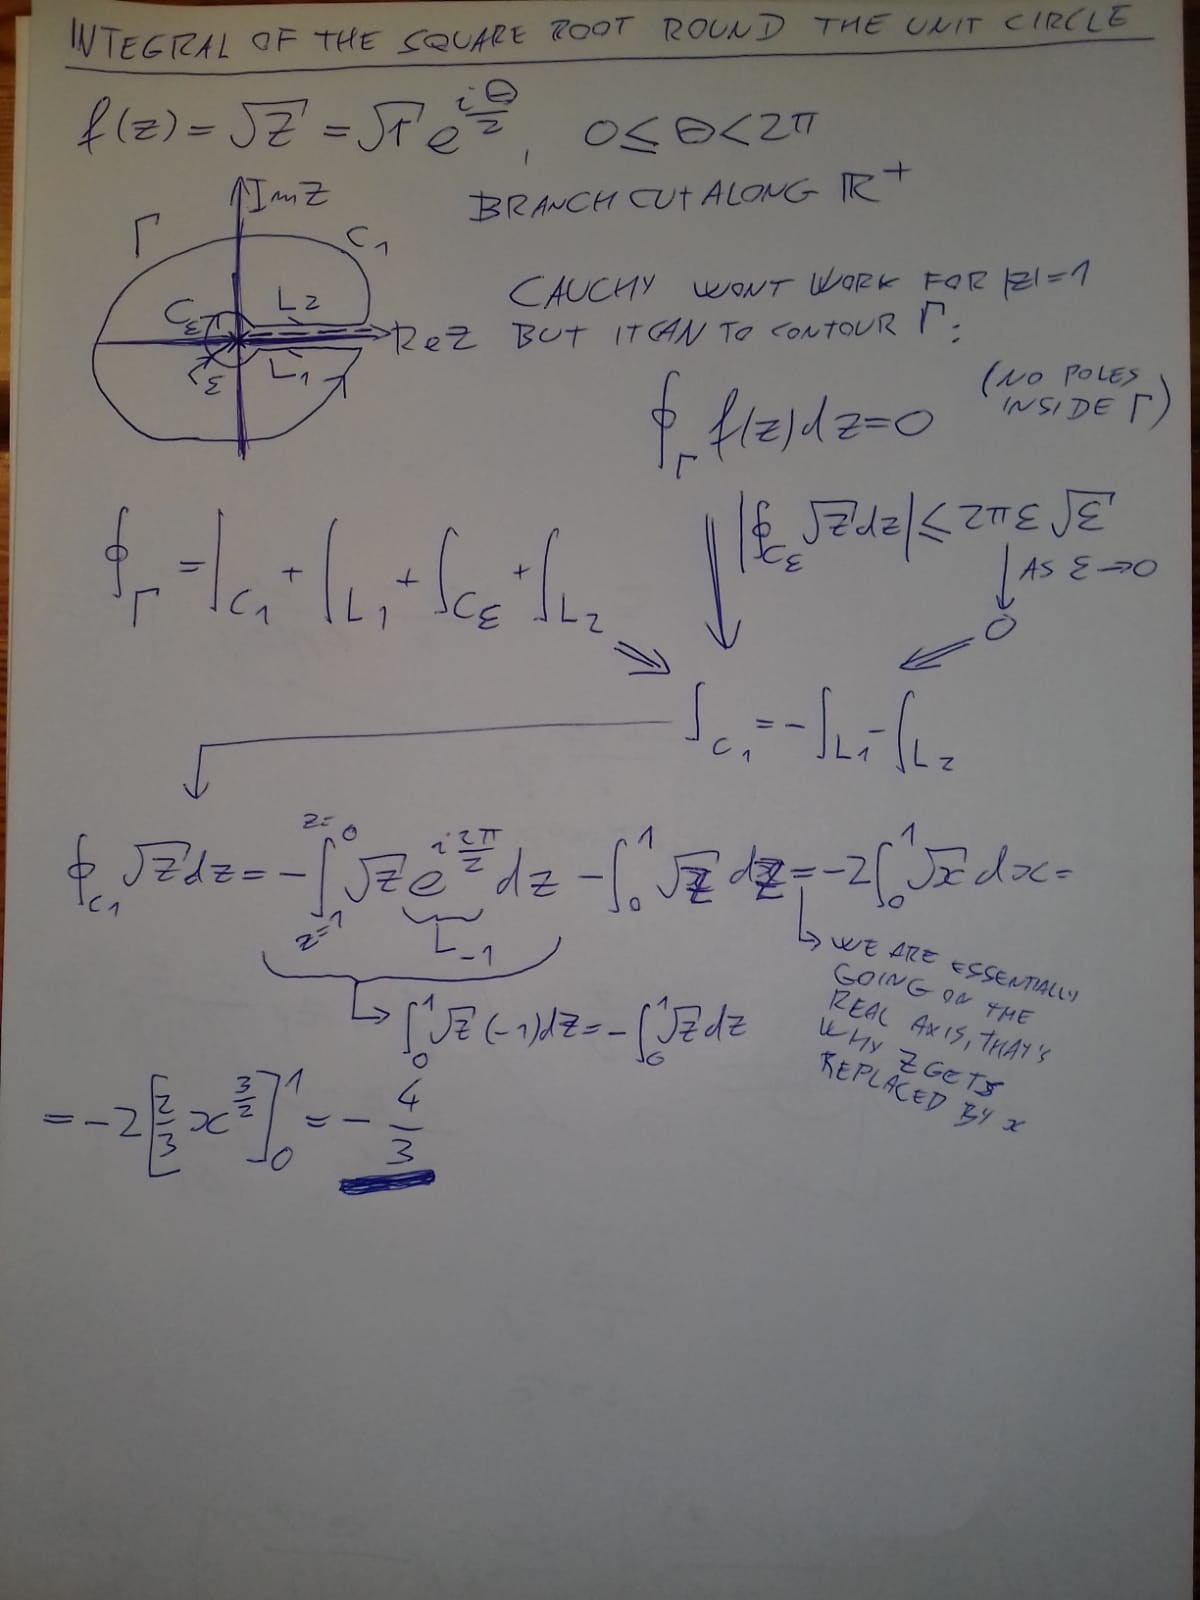 INTEGRAL OF THE SQUARE ROOT ROUND THE UNIT CIRCLE
f(z) = √z = √r e^{iθ/2}, 0 ≤ θ < 2π
BRANCH CUT ALONG ℝ⁺
Im z
Γ
C₁
Cε
L₂
Re z
ε
L₁
CAUCHY WONT WORK FOR |z|=1
BUT IT CAN TO CONTOUR Γ:
∮_Γ f(z)dz=0
(NO POLES
INSIDE Γ)
|∮_{Cε} √z dz| ≤ 2πε√ε
AS ε→0
0
∮_Γ = ∫_{C₁} + ∫_{L₁} + ∫_{Cε} + ∫_{L₂}
∫_{C₁} = -∫_{L₁} - ∫_{L₂}
∮_{C₁} √z dz = -∫_{z=1}^{z=0} √z e^{i2π/2} dz - ∫_0^1 √z dz = -2∫_0^1 √x dx =
-1
∫_0^1 √z (-1)dz = -∫_0^1 √z dz
WE ARE ESSENTIALLY
GOING ON THE
REAL AXIS, THAT'S
WHY Z GETS
REPLACED BY x
= -2[2/3 x^{3/2}]_0^1 = -4/3